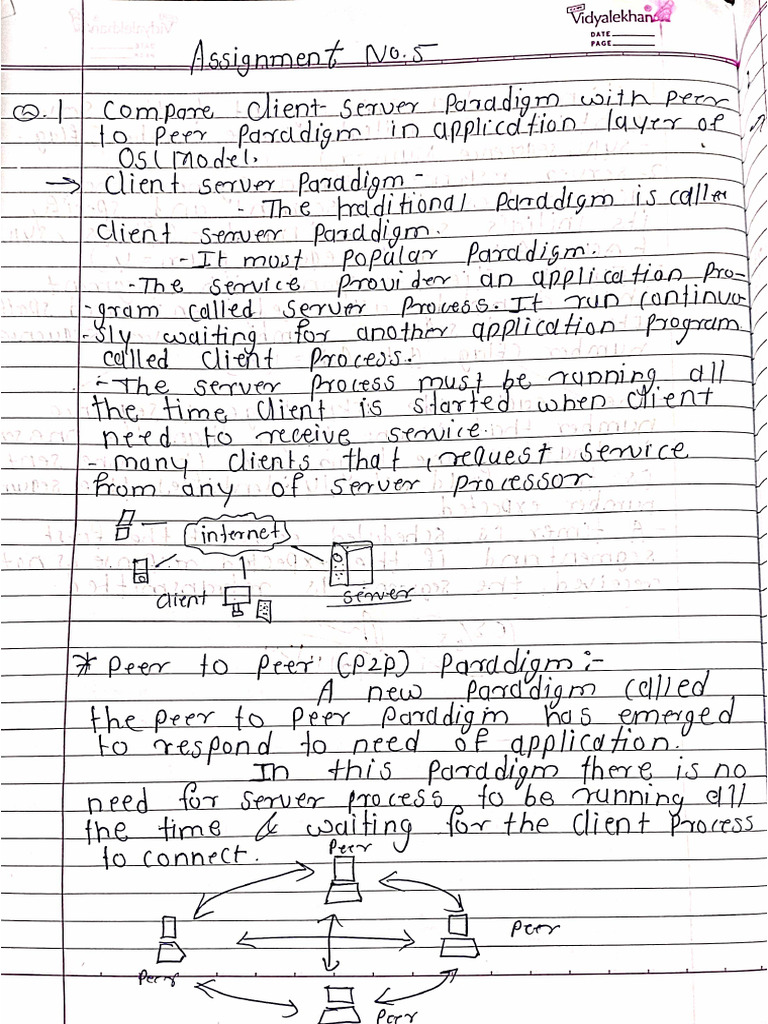 Vidyalekhan
DATE
PAGE
Assignment No. 5
Q.1 Compare Client-Server Paradigm with peer
to peer Paradigm in application layer of
OSI Model.
→ Client server Paradigm -
- The traditional Paradigm is caller
client server Paradigm.
- It most popular Paradigm.
- The service provider an application pro-
-gram called server process. It run continuo
-sly waiting for another application program
called client process.
- The server process must be running all
the time client is started when client
need to receive service.
- many clients that request service
from any of server processor
internet
client
server
* Peer to Peer (P2P) Paradigm :-
A new Paradigm called
the peer to peer Paradigm has emerged
to respond to need of application.
In this Paradigm there is no
need for server process to be running all
the time & waiting for the client process
to connect.
Peer
Peer
Peer
Peer